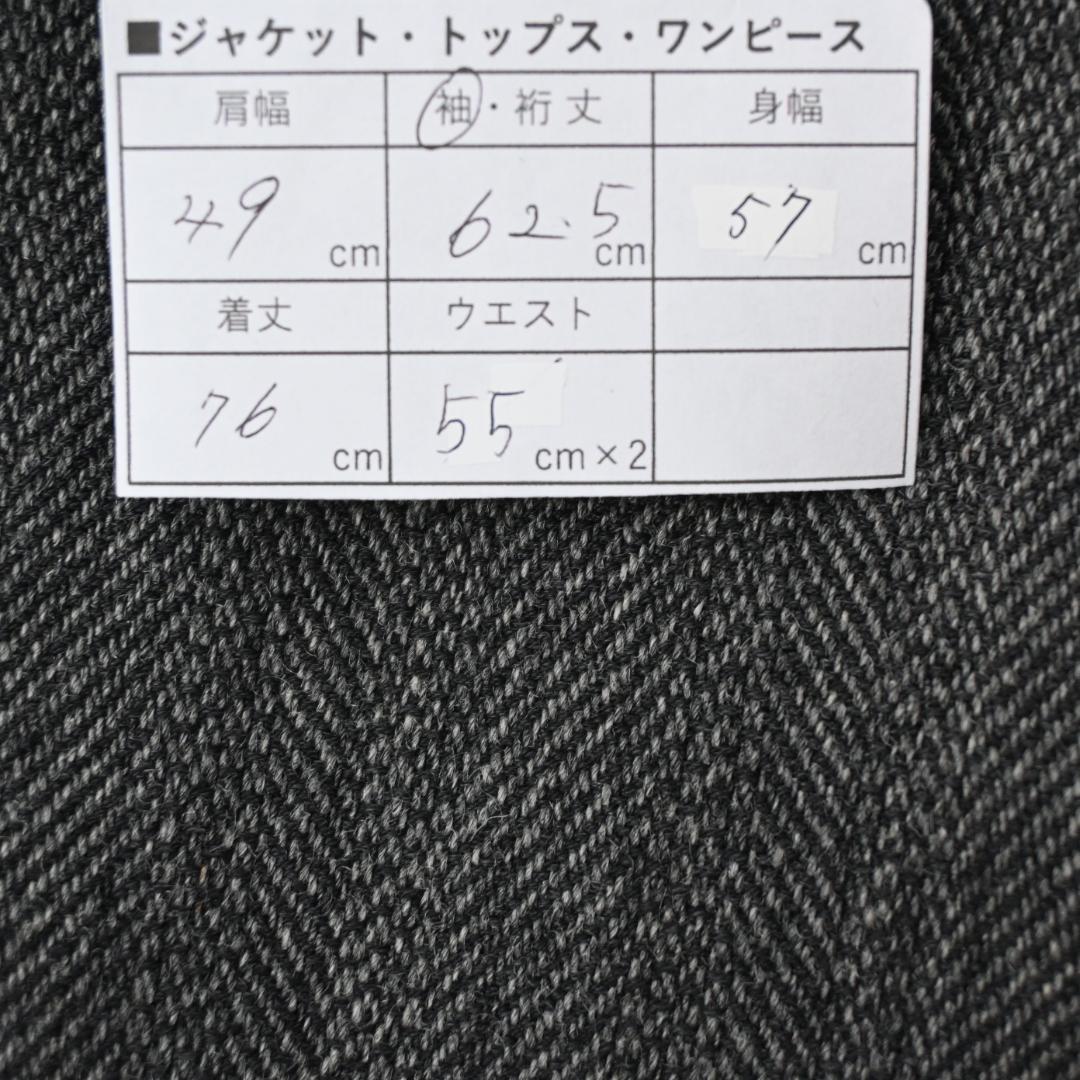 ■ジャケット・トップス・ワンピース
肩幅 袖・裄丈 身幅
49 cm 62.5 cm 57 cm
着丈 ウエスト
76 cm 55 cm×2